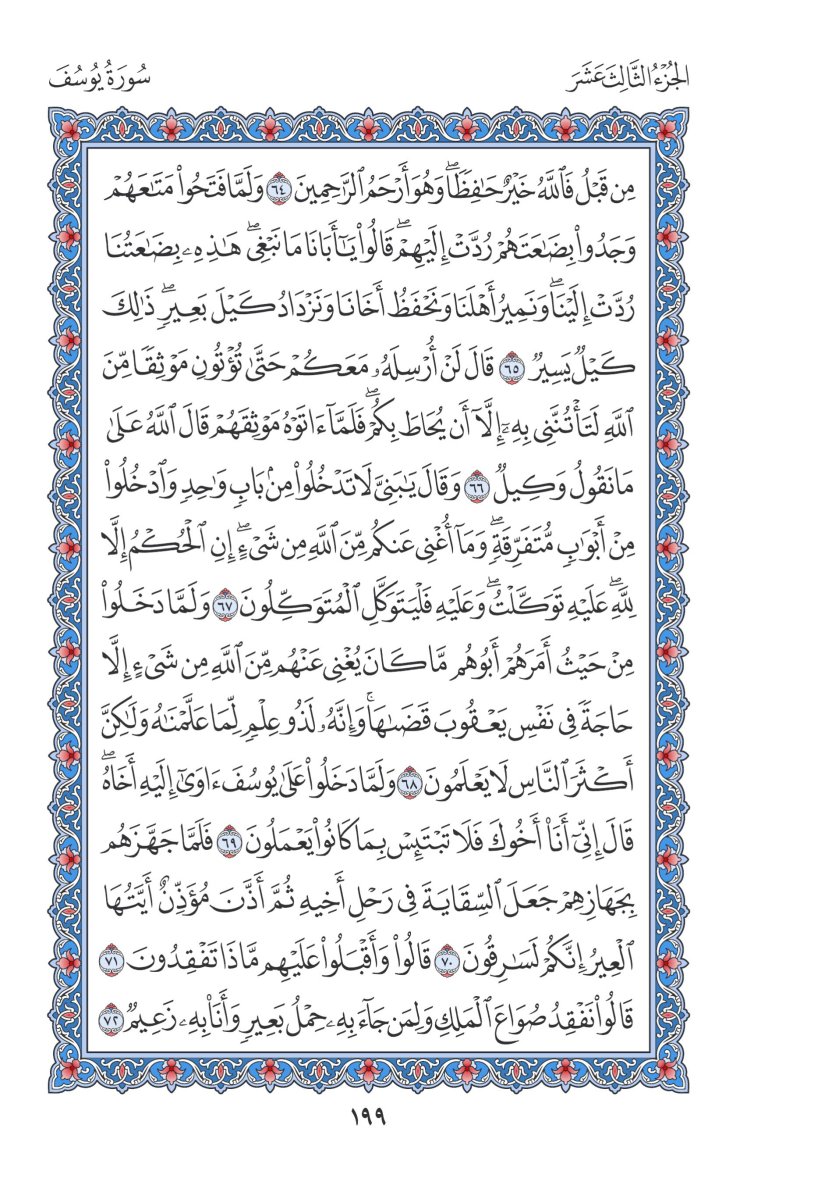 الجُزْءُ الثَّالِثَ عَشَرَ
سُورَةُ يُوسُفَ
مِن قَبْلُ فَٱللَّهُ خَيْرٌ حَٰفِظٗاۖ وَهُوَ أَرۡحَمُ ٱلرَّٰحِمِينَ ٦٤ وَلَمَّا فَتَحُواْ مَتَٰعَهُمۡ
وَجَدُواْ بِضَٰعَتَهُمۡ رُدَّتۡ إِلَيۡهِمۡۖ قَالُواْ يَٰٓأَبَانَا مَا نَبۡغِيۖ هَٰذِهِۦ بِضَٰعَتُنَا
رُدَّتۡ إِلَيۡنَاۖ وَنَمِيرُ أَهۡلَنَا وَنَحۡفَظُ أَخَانَا وَنَزۡدَادُ كَيۡلَ بَعِيرٖۖ ذَٰلِكَ
كَيۡلٞ يَسِيرٞ ٦٥ قَالَ لَنۡ أُرۡسِلَهُۥ مَعَكُمۡ حَتَّىٰ تُؤۡتُونِ مَوۡثِقٗا مِّنَ
ٱللَّهِ لَتَأۡتُنَّنِي بِهِۦٓ إِلَّآ أَن يُحَاطَ بِكُمۡۖ فَلَمَّآ ءَاتَوۡهُ مَوۡثِقَهُمۡ قَالَ ٱللَّهُ عَلَىٰ
مَا نَقُولُ وَكِيلٞ ٦٦ وَقَالَ يَٰبَنِيَّ لَا تَدۡخُلُواْ مِنۢ بَابٖ وَٰحِدٖ وَٱدۡخُلُواْ
مِنۡ أَبۡوَٰبٖ مُّتَفَرِّقَةٖۖ وَمَآ أُغۡنِي عَنكُم مِّنَ ٱللَّهِ مِن شَيۡءٍۖ إِنِ ٱلۡحُكۡمُ إِلَّا
لِلَّهِۖ عَلَيۡهِ تَوَكَّلۡتُۖ وَعَلَيۡهِ فَلۡيَتَوَكَّلِ ٱلۡمُتَوَكِّلُونَ ٦٧ وَلَمَّا دَخَلُواْ
مِنۡ حَيۡثُ أَمَرَهُمۡ أَبُوهُم مَّا كَانَ يُغۡنِي عَنۡهُم مِّنَ ٱللَّهِ مِن شَيۡءٍ إِلَّا
حَاجَةٗ فِي نَفۡسِ يَعۡقُوبَ قَضَىٰهَاۚ وَإِنَّهُۥ لَذُو عِلۡمٖ لِّمَا عَلَّمۡنَٰهُ وَلَٰكِنَّ
أَكۡثَرَ ٱلنَّاسِ لَا يَعۡلَمُونَ ٦٨ وَلَمَّا دَخَلُواْ عَلَىٰ يُوسُفَ ءَاوَىٰٓ إِلَيۡهِ أَخَاهُۖ
قَالَ إِنِّيٓ أَنَا۠ أَخُوكَ فَلَا تَبۡتَئِسۡ بِمَا كَانُواْ يَعۡمَلُونَ ٦٩ فَلَمَّا جَهَّزَهُم
بِجَهَازِهِمۡ جَعَلَ ٱلسِّقَايَةَ فِي رَحۡلِ أَخِيهِ ثُمَّ أَذَّنَ مُؤَذِّنٌ أَيَّتُهَا
ٱلۡعِيرُ إِنَّكُمۡ لَسَٰرِقُونَ ٧٠ قَالُواْ وَأَقۡبَلُواْ عَلَيۡهِم مَّاذَا تَفۡقِدُونَ ٧١
قَالُواْ نَفۡقِدُ صُوَاعَ ٱلۡمَلِكِ وَلِمَن جَآءَ بِهِۦ حِمۡلُ بَعِيرٖ وَأَنَا۠ بِهِۦ زَعِيمٞ ٧٢
١٩٩